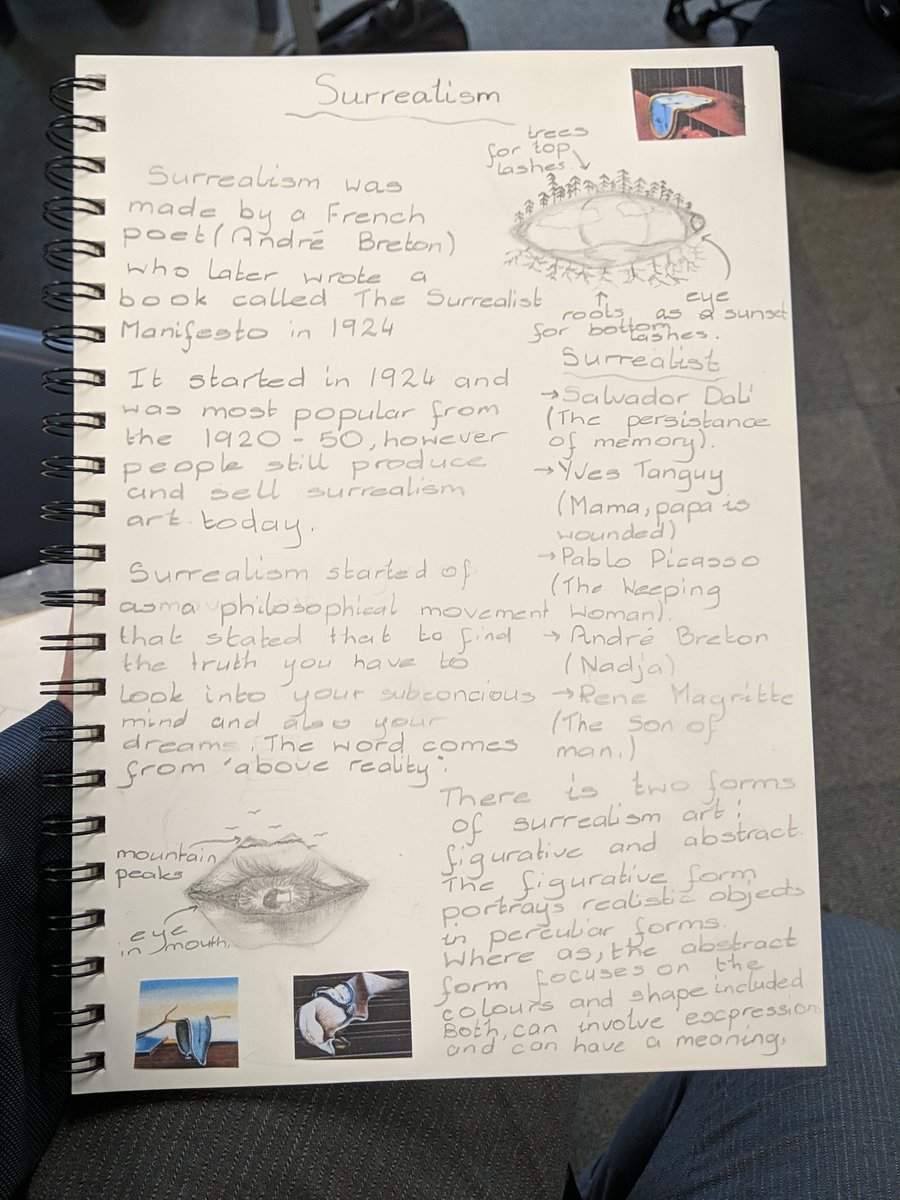 Surrealism
trees
for top
lashes.
roots
for bottom
lashes.
eye
as a sunset
Surrealism was
made by a French
poet (André Breton)
who later wrote a
book called The Surrealist
Manifesto in 1924
It started in 1924 and
was most popular from
the 1920-50, however
people still produce
and sell surrealism
art today.
Surrealism started of
as a philosophical movement
that stated that to find
the truth you have to
look into your subconcious
mind and also your
dreams. The word comes
from 'above reality'.
Surrealist
→Salvador Dali
(The persistance
of memory).
→Yves Tanguy
(Mama, papa is
wounded)
→Pablo Picasso
(The Weeping
Woman).
→André Breton
(Nadja)
→Rene Magritte
(The Son of
man.)
There is two forms
of surrealism art:
figurative and abstract.
The figurative form
portrays realistic objects
in perculiar forms.
Where as, the abstract
form focuses on the
colours and shape included.
Both, can involve expression
and can have a meaning.
mountain
peaks
eye
in mouth.